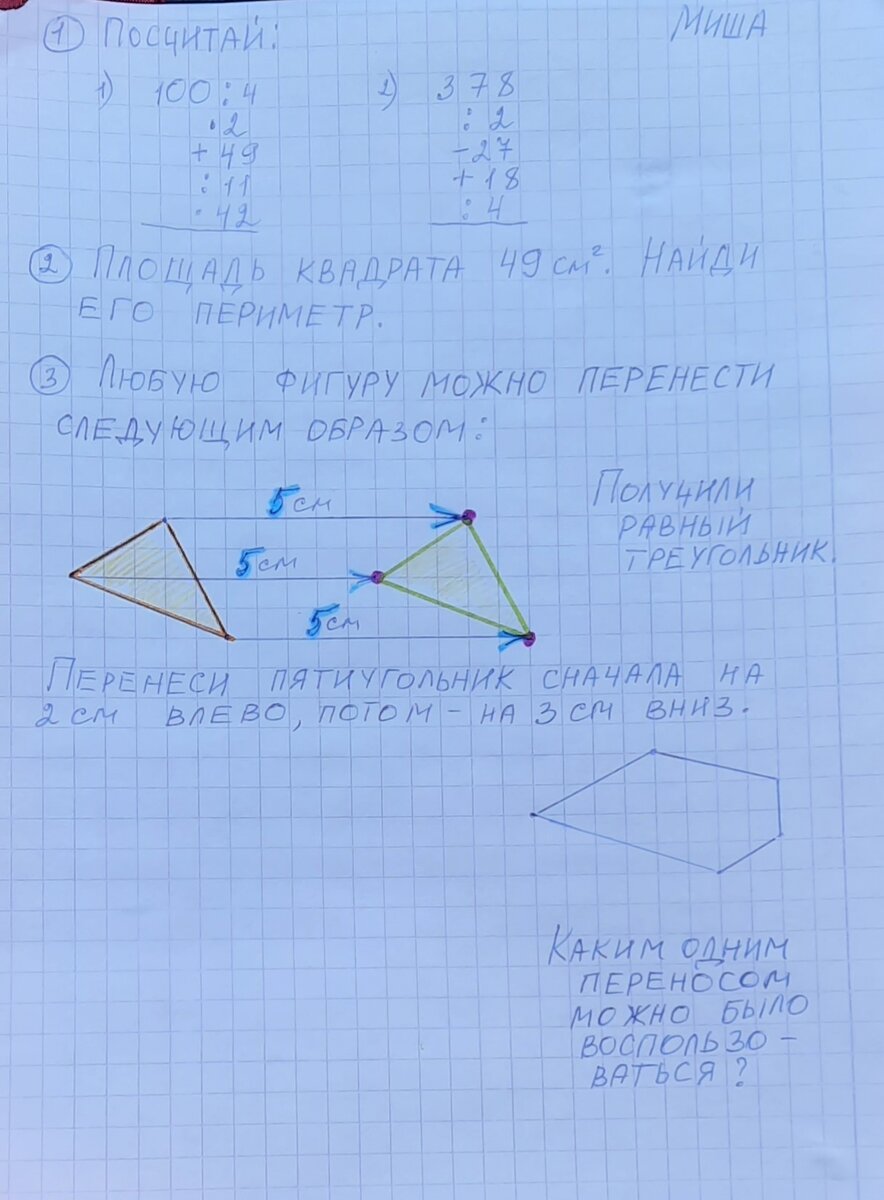 ① ПОСЧИТАЙ: МИША
1) 100 : 4 2) 378
· 2 : 2
+ 49 - 27
: 11 + 18
· 42 : 4
② ПЛОЩАДЬ КВАДРАТА 49 см². НАЙДИ
ЕГО ПЕРИМЕТР.
③ ЛЮБУЮ ФИГУРУ МОЖНО ПЕРЕНЕСТИ
СЛЕДУЮЩИМ ОБРАЗОМ:
5 см
5 см
5 см
ПОЛУЧИЛИ
РАВНЫЙ
ТРЕУГОЛЬНИК.
ПЕРЕНЕСИ ПЯТИУГОЛЬНИК СНАЧАЛА НА
2 СМ ВЛЕВО, ПОТОМ - НА 3 СМ ВНИЗ.
КАКИМ ОДНИМ
ПЕРЕНОСОМ
МОЖНО БЫЛО
ВОСПОЛЬЗО -
ВАТЬСЯ?